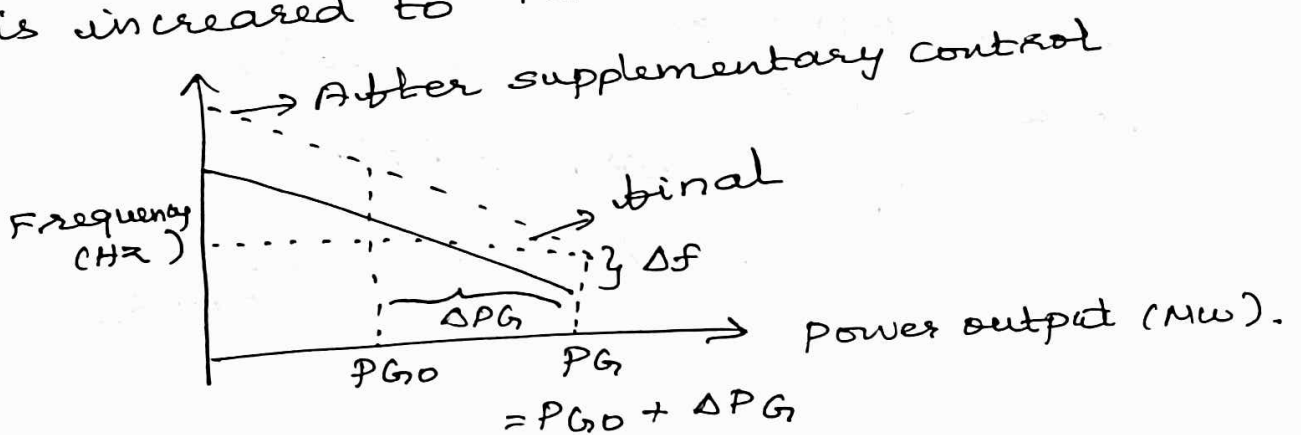 is increared to
After supplementary control
final
Frequency
(HZ)
} Δf
ΔPG
Power output (MW).
PG0
PG
= PG0 + ΔPG